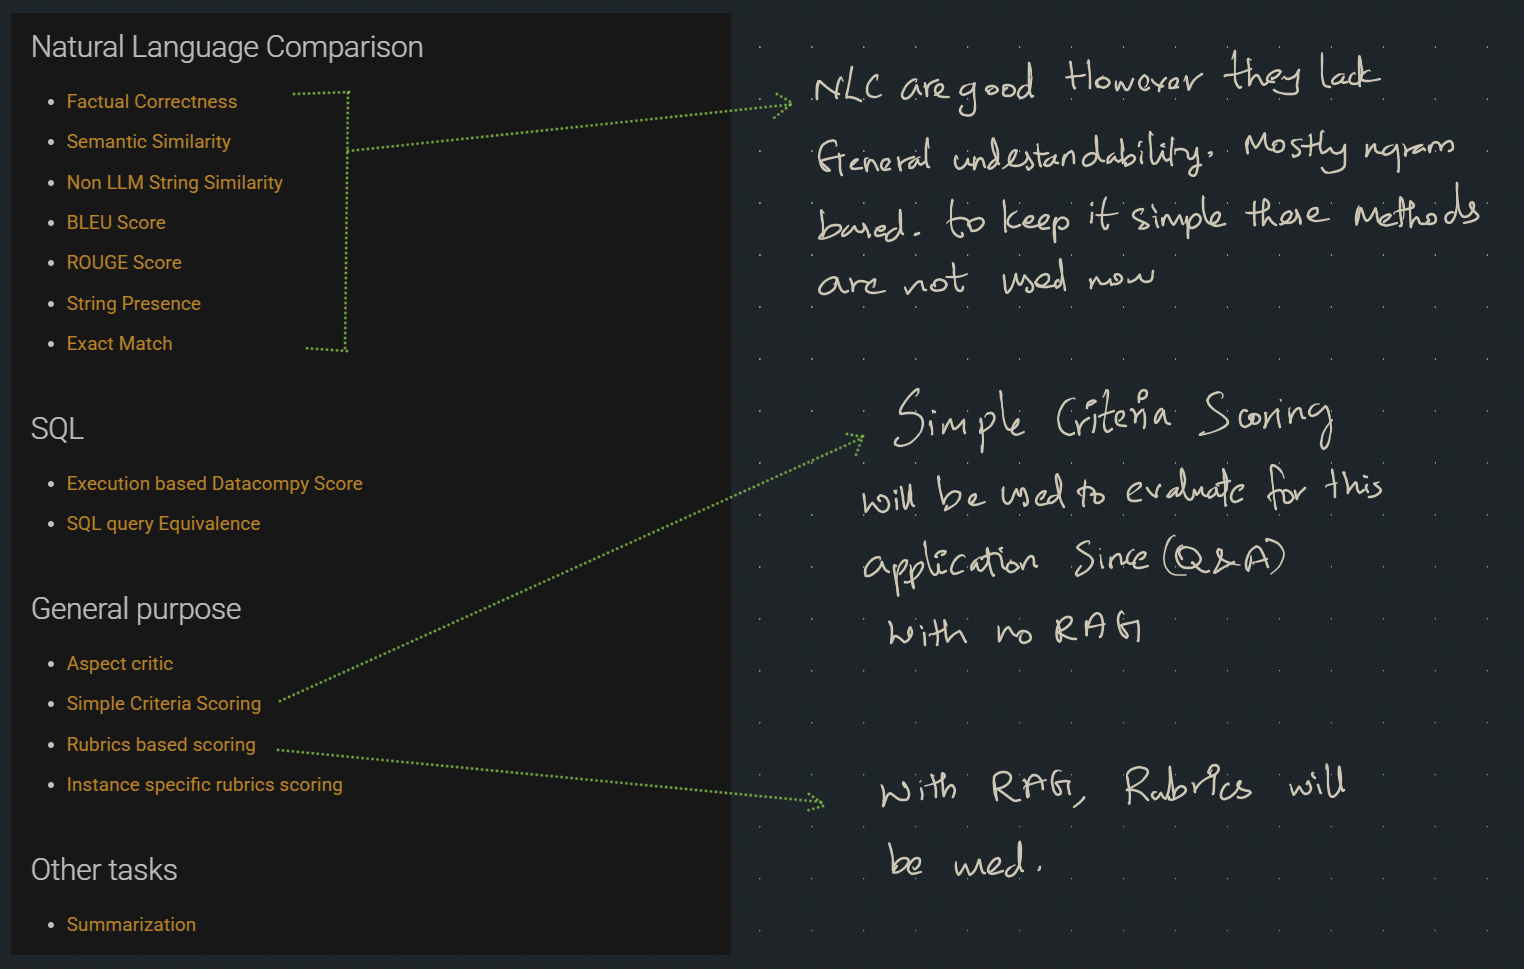 Natural Language Comparison
Factual Correctness
Semantic Similarity
Non LLM String Similarity
BLEU Score
ROUGE Score
String Presence
Exact Match
SQL
Execution based Datacompy Score
SQL query Equivalence
General purpose
Aspect critic
Simple Criteria Scoring
Rubrics based scoring
Instance specific rubrics scoring
Other tasks
Summarization
NLC are good However they lack
General undestandability. Mostly ngram
based. to keep it simple these methods
are not used now
Simple Criteria Scoring
will be used to evaluate for this
application Since (Q&A)
with no RAG
With RAG, Rubrics will
be used.